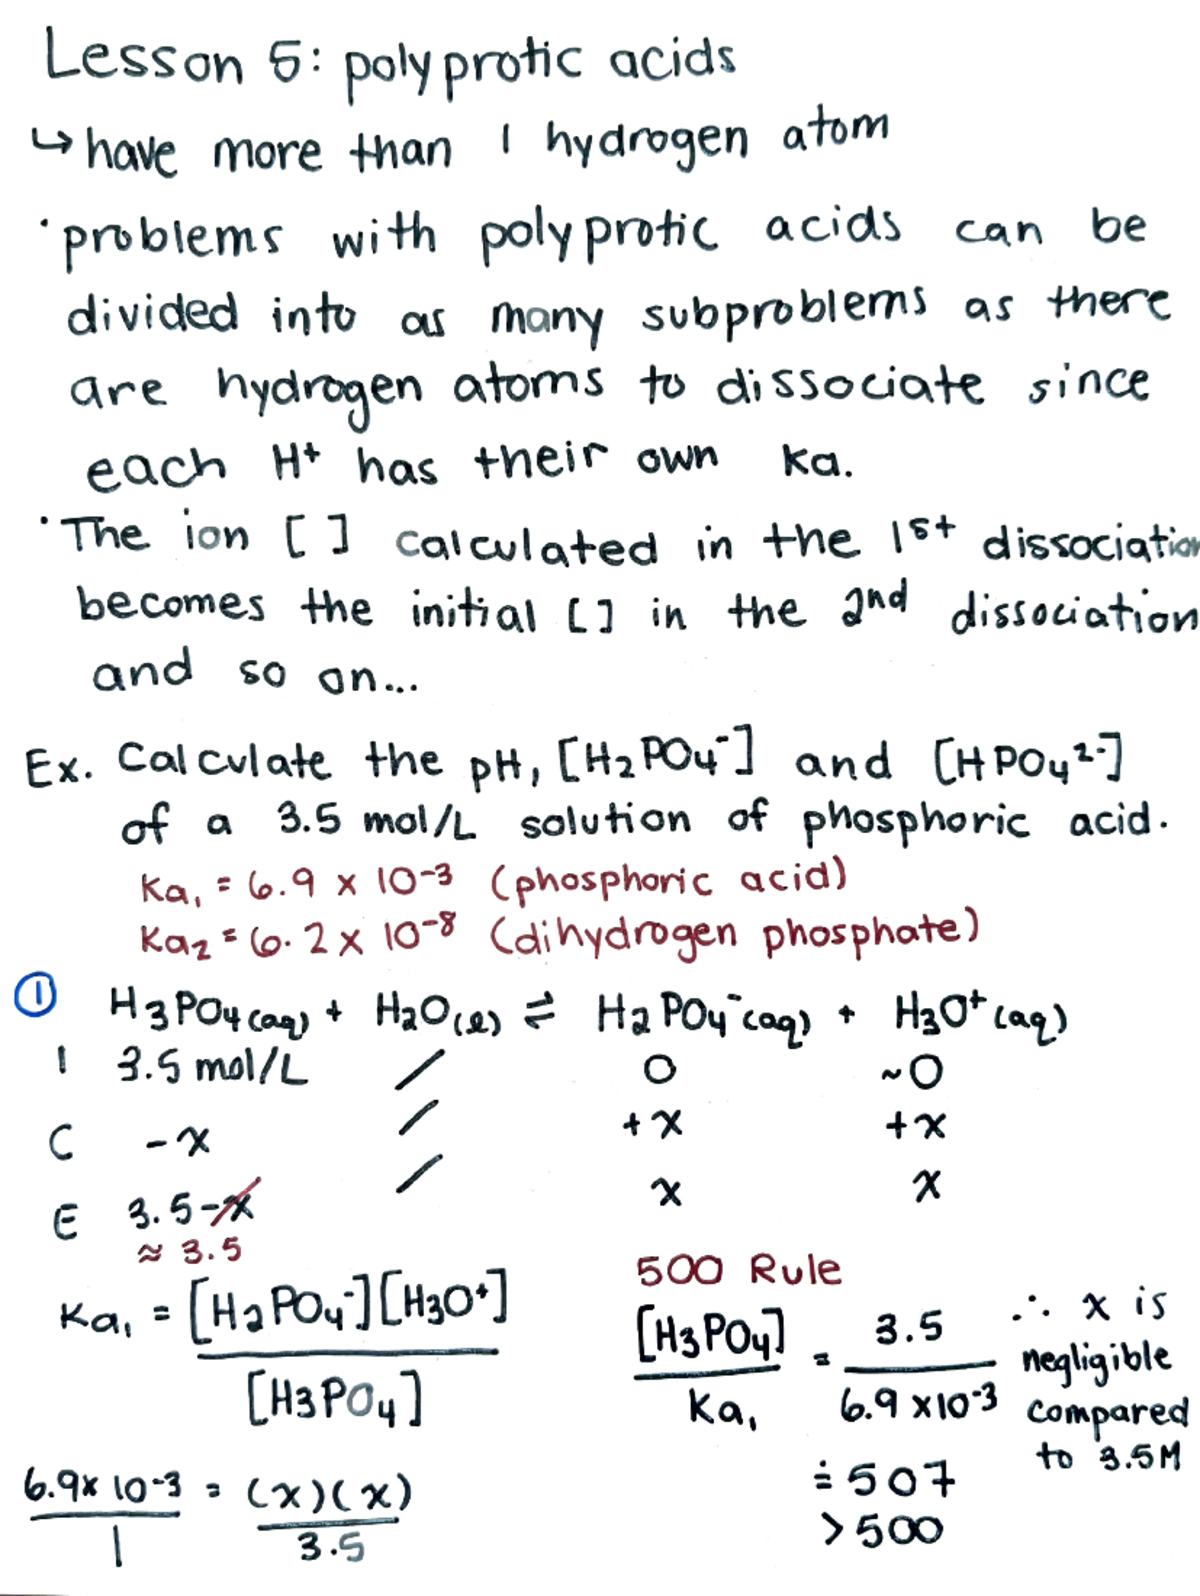 Lesson 5: polyprotic acids
↳ have more than 1 hydrogen atom
· problems with polyprotic acids can be
divided into as many subproblems as there
are hydrogen atoms to dissociate since
each H⁺ has their own Ka.
· The ion [ ] calculated in the 1st dissociation
becomes the initial [ ] in the 2nd dissociation
and so on...
Ex. Calculate the pH, [H₂PO₄⁻] and [HPO₄²⁻]
of a 3.5 mol/L solution of phosphoric acid.
Ka₁ = 6.9 x 10⁻³ (phosphoric acid)
Ka₂ = 6.2 x 10⁻⁸ (dihydrogen phosphate)
① H₃PO₄(aq) + H₂O(l) ⇌ H₂PO₄⁻(aq) + H₃O⁺(aq)
I 3.5 mol/L / 0 ~0
C -x / +x +x
E 3.5-x / x x
≈ 3.5
Ka₁ = [H₂PO₄⁻][H₃O⁺] / [H₃PO₄]
6.9x 10⁻³ / 1 = (x)(x) / 3.5
500 Rule
[H₃PO₄] / Ka₁ = 3.5 / 6.9 x10⁻³
≐ 507
> 500
∴ x is
negligible
compared
to 3.5M